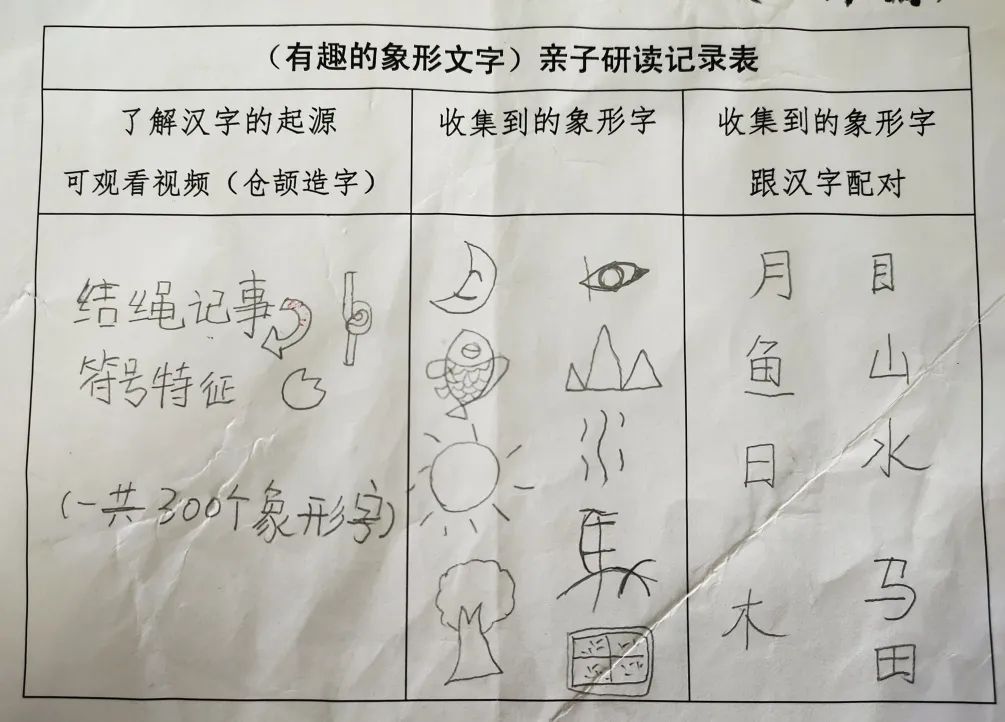 （有趣的象形文字）亲子研读记录表
了解汉字的起源
可观看视频（仓颉造字）
收集到的象形字
收集到的象形字
跟汉字配对
结绳记事
符号特征
(一共300个象形字)
月 目
鱼 山
日 水
木 马
田